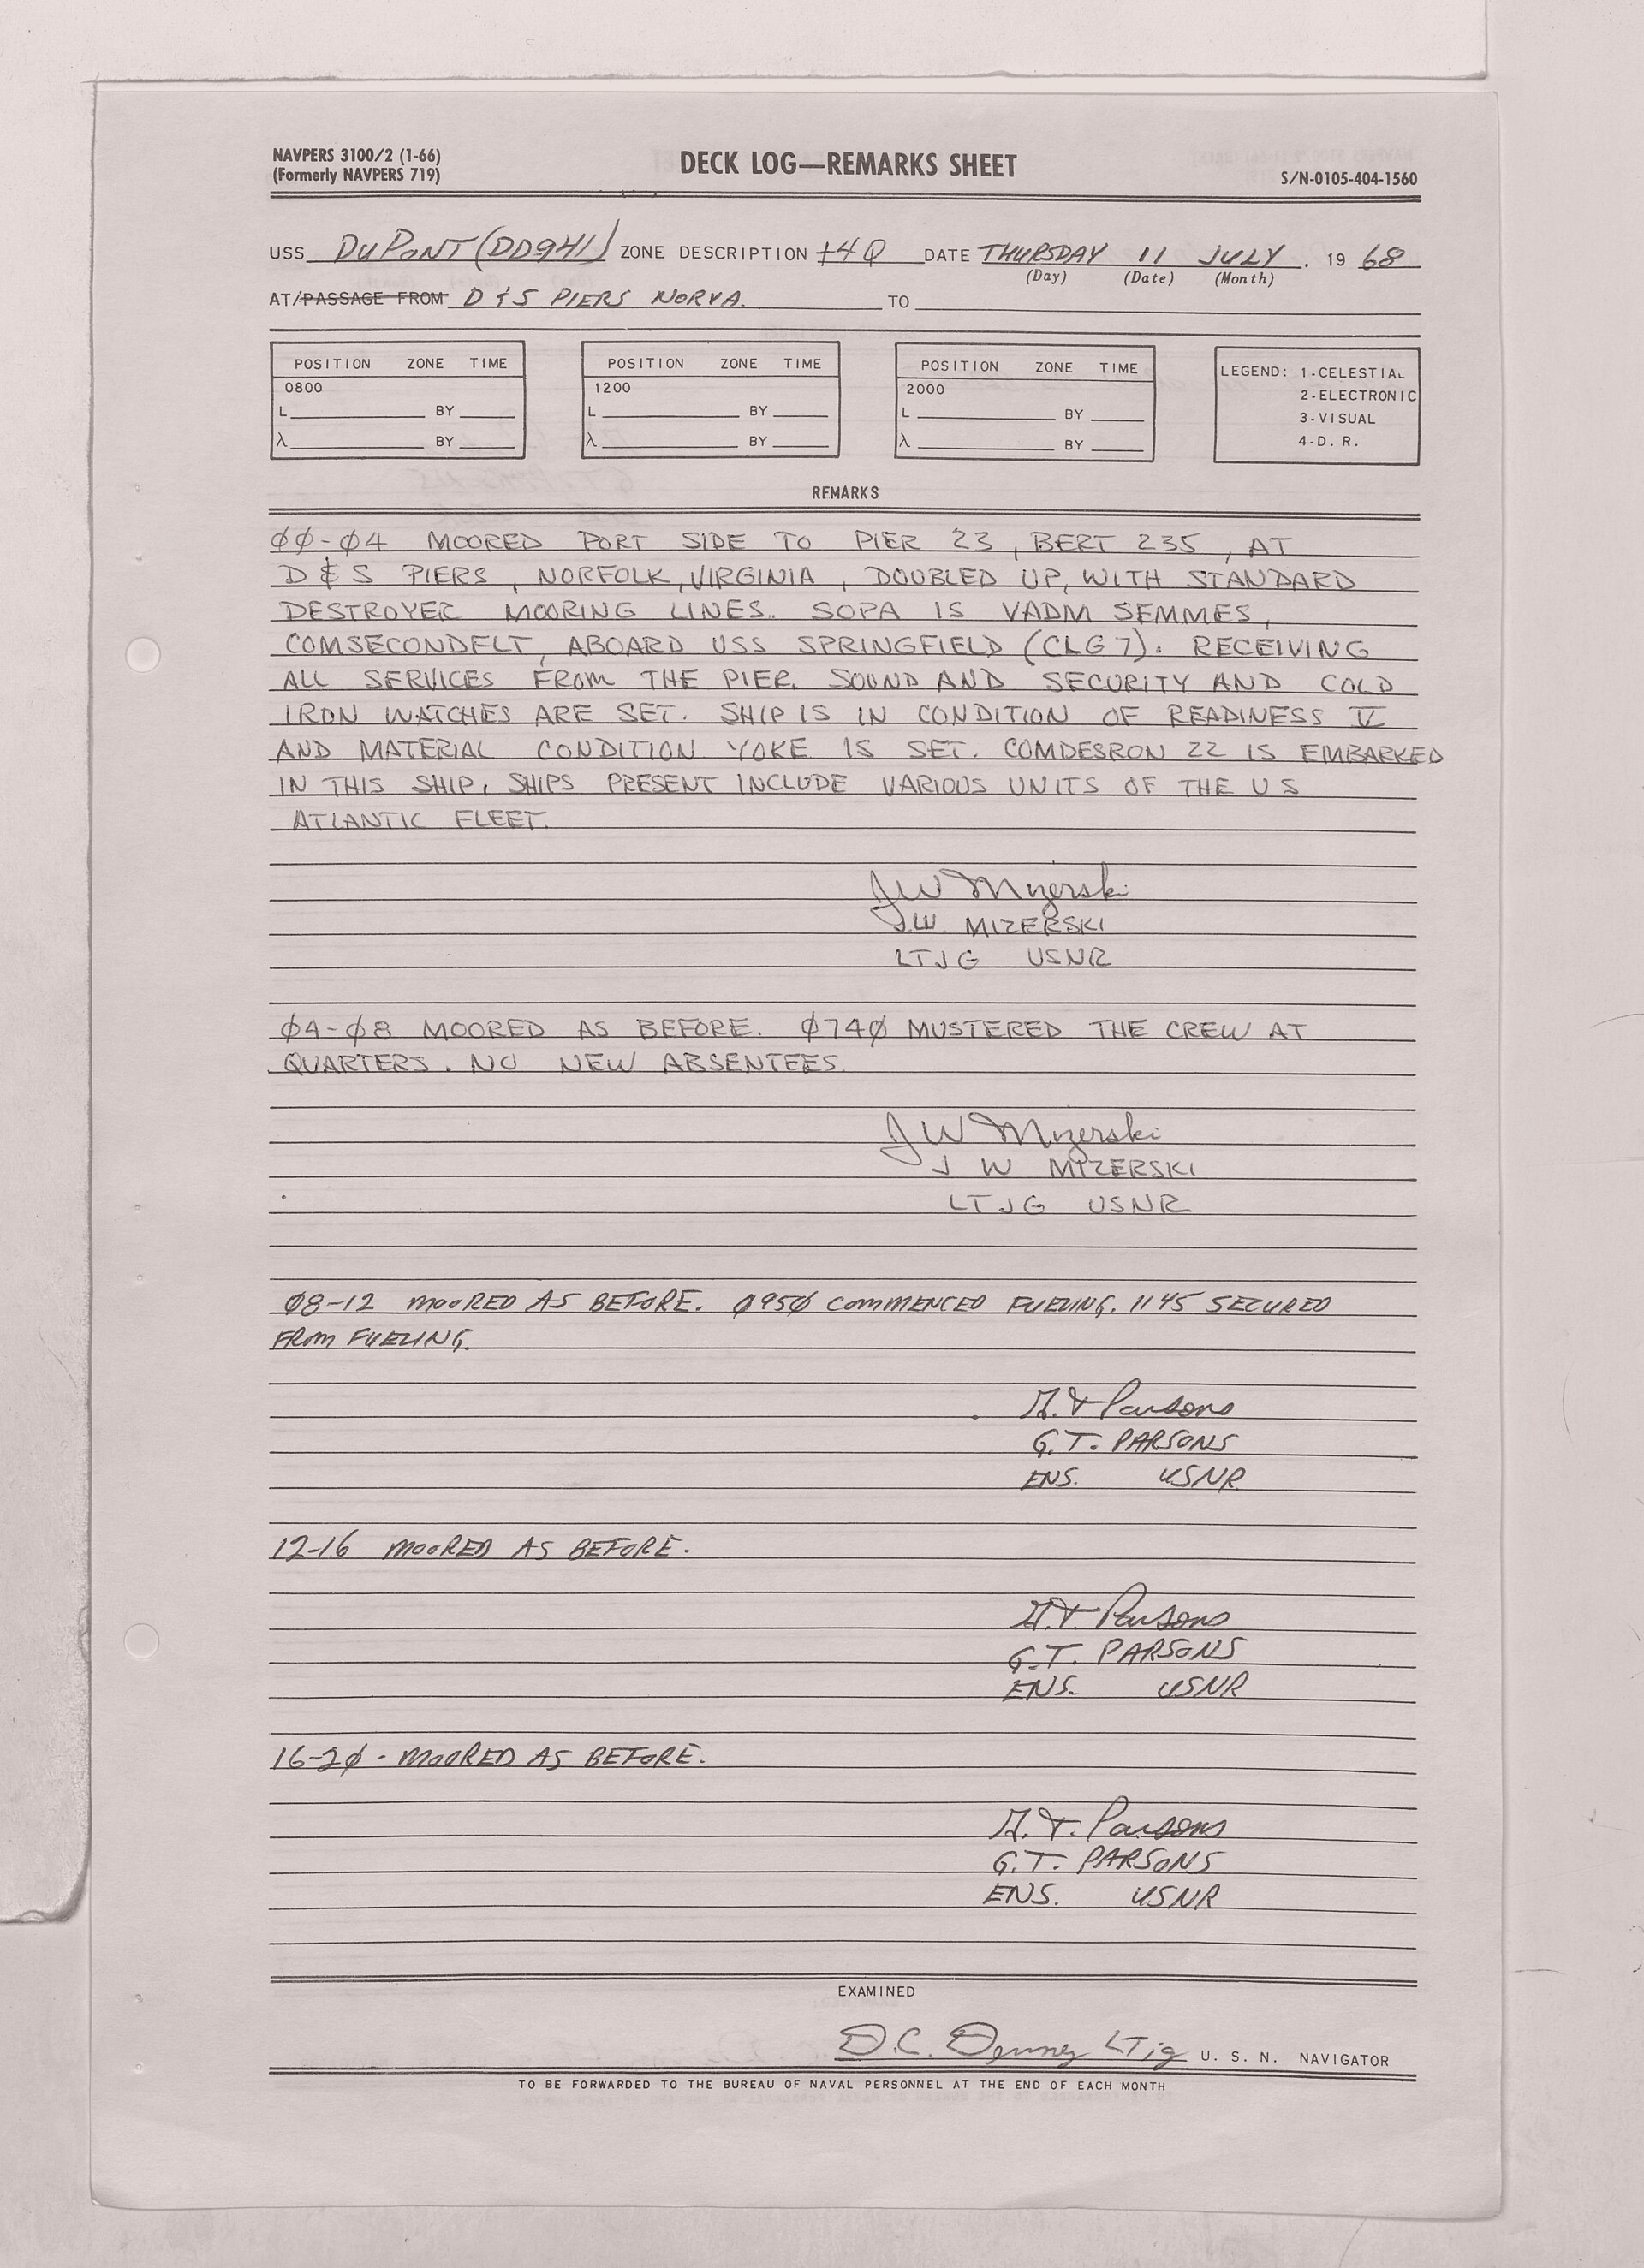 NAVPERS 3100/2 (1-66)
(Formerly NAVPERS 719)
DECK LOG—REMARKS SHEET
S/N-0105-404-1560
USS DuPONT (DD941) ZONE DESCRIPTION +4Q DATE THURSDAY 11 JULY . 19 68
(Day) (Date) (Month)
AT/PASSAGE FROM D & S PIERS NORVA. TO
POSITION ZONE TIME
0800
L BY
λ BY
POSITION ZONE TIME
1200
L BY
λ BY
POSITION ZONE TIME
2000
L BY
λ BY
LEGEND: 1-CELESTIAL
2-ELECTRONIC
3-VISUAL
4-D. R.
REMARKS
ØØ-Ø4 MOORED PORT SIDE TO PIER 23, BERT 235, AT
D & S PIERS, NORFOLK, VIRGINIA, DOUBLED UP, WITH STANDARD
DESTROYER MOORING LINES. SOPA IS VADM SEMMES,
COMSECONDFLT, ABOARD USS SPRINGFIELD (CLG7). RECEIVING
ALL SERVICES FROM THE PIER. SOUND AND SECURITY AND COLD
IRON WATCHES ARE SET. SHIP IS IN CONDITION OF READINESS V
AND MATERIAL CONDITION YOKE IS SET. COMDESRON 22 IS EMBARKED
IN THIS SHIP. SHIPS PRESENT INCLUDE VARIOUS UNITS OF THE US
ATLANTIC FLEET.
JW Mizerski
J.W. MIZERSKI
LTJG USNR
Ø4-Ø8 MOORED AS BEFORE. Ø74Ø MUSTERED THE CREW AT
QUARTERS. NO NEW ABSENTEES.
JW Mizerski
J W MIZERSKI
LTJG USNR
Ø8-12 MOORED AS BEFORE. Ø95Ø COMMENCED FUELING. 1145 SECURED
FROM FUELING.
G.T. Parsons
G.T. PARSONS
ENS. USNR
12-16 MOORED AS BEFORE.
G.T. Parsons
G.T. PARSONS
ENS. USNR
16-2Ø - MOORED AS BEFORE.
G.T. Parsons
G.T. PARSONS
ENS. USNR
EXAMINED
D.C. Denney LTjg U. S. N. NAVIGATOR
TO BE FORWARDED TO THE BUREAU OF NAVAL PERSONNEL AT THE END OF EACH MONTH